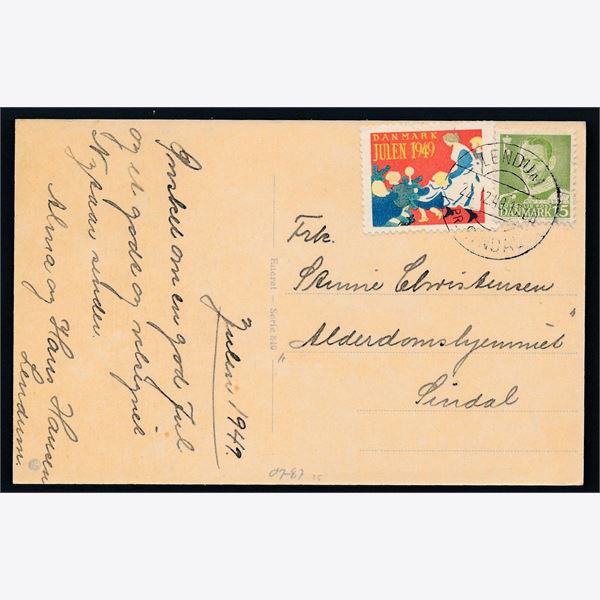 Julen 1949.
Ønsket om en god Jul
og et godt og velsignet
Nytaar sender
Alma og Hans Hansen
Lendum.
Eneret — Serie 840
DANMARK
JULEN 1949
DANMARK 15
LENDUM
PR. SINDAL
Frk.
Stinne Christensen
"Alderdomshjemmet"
Sindal